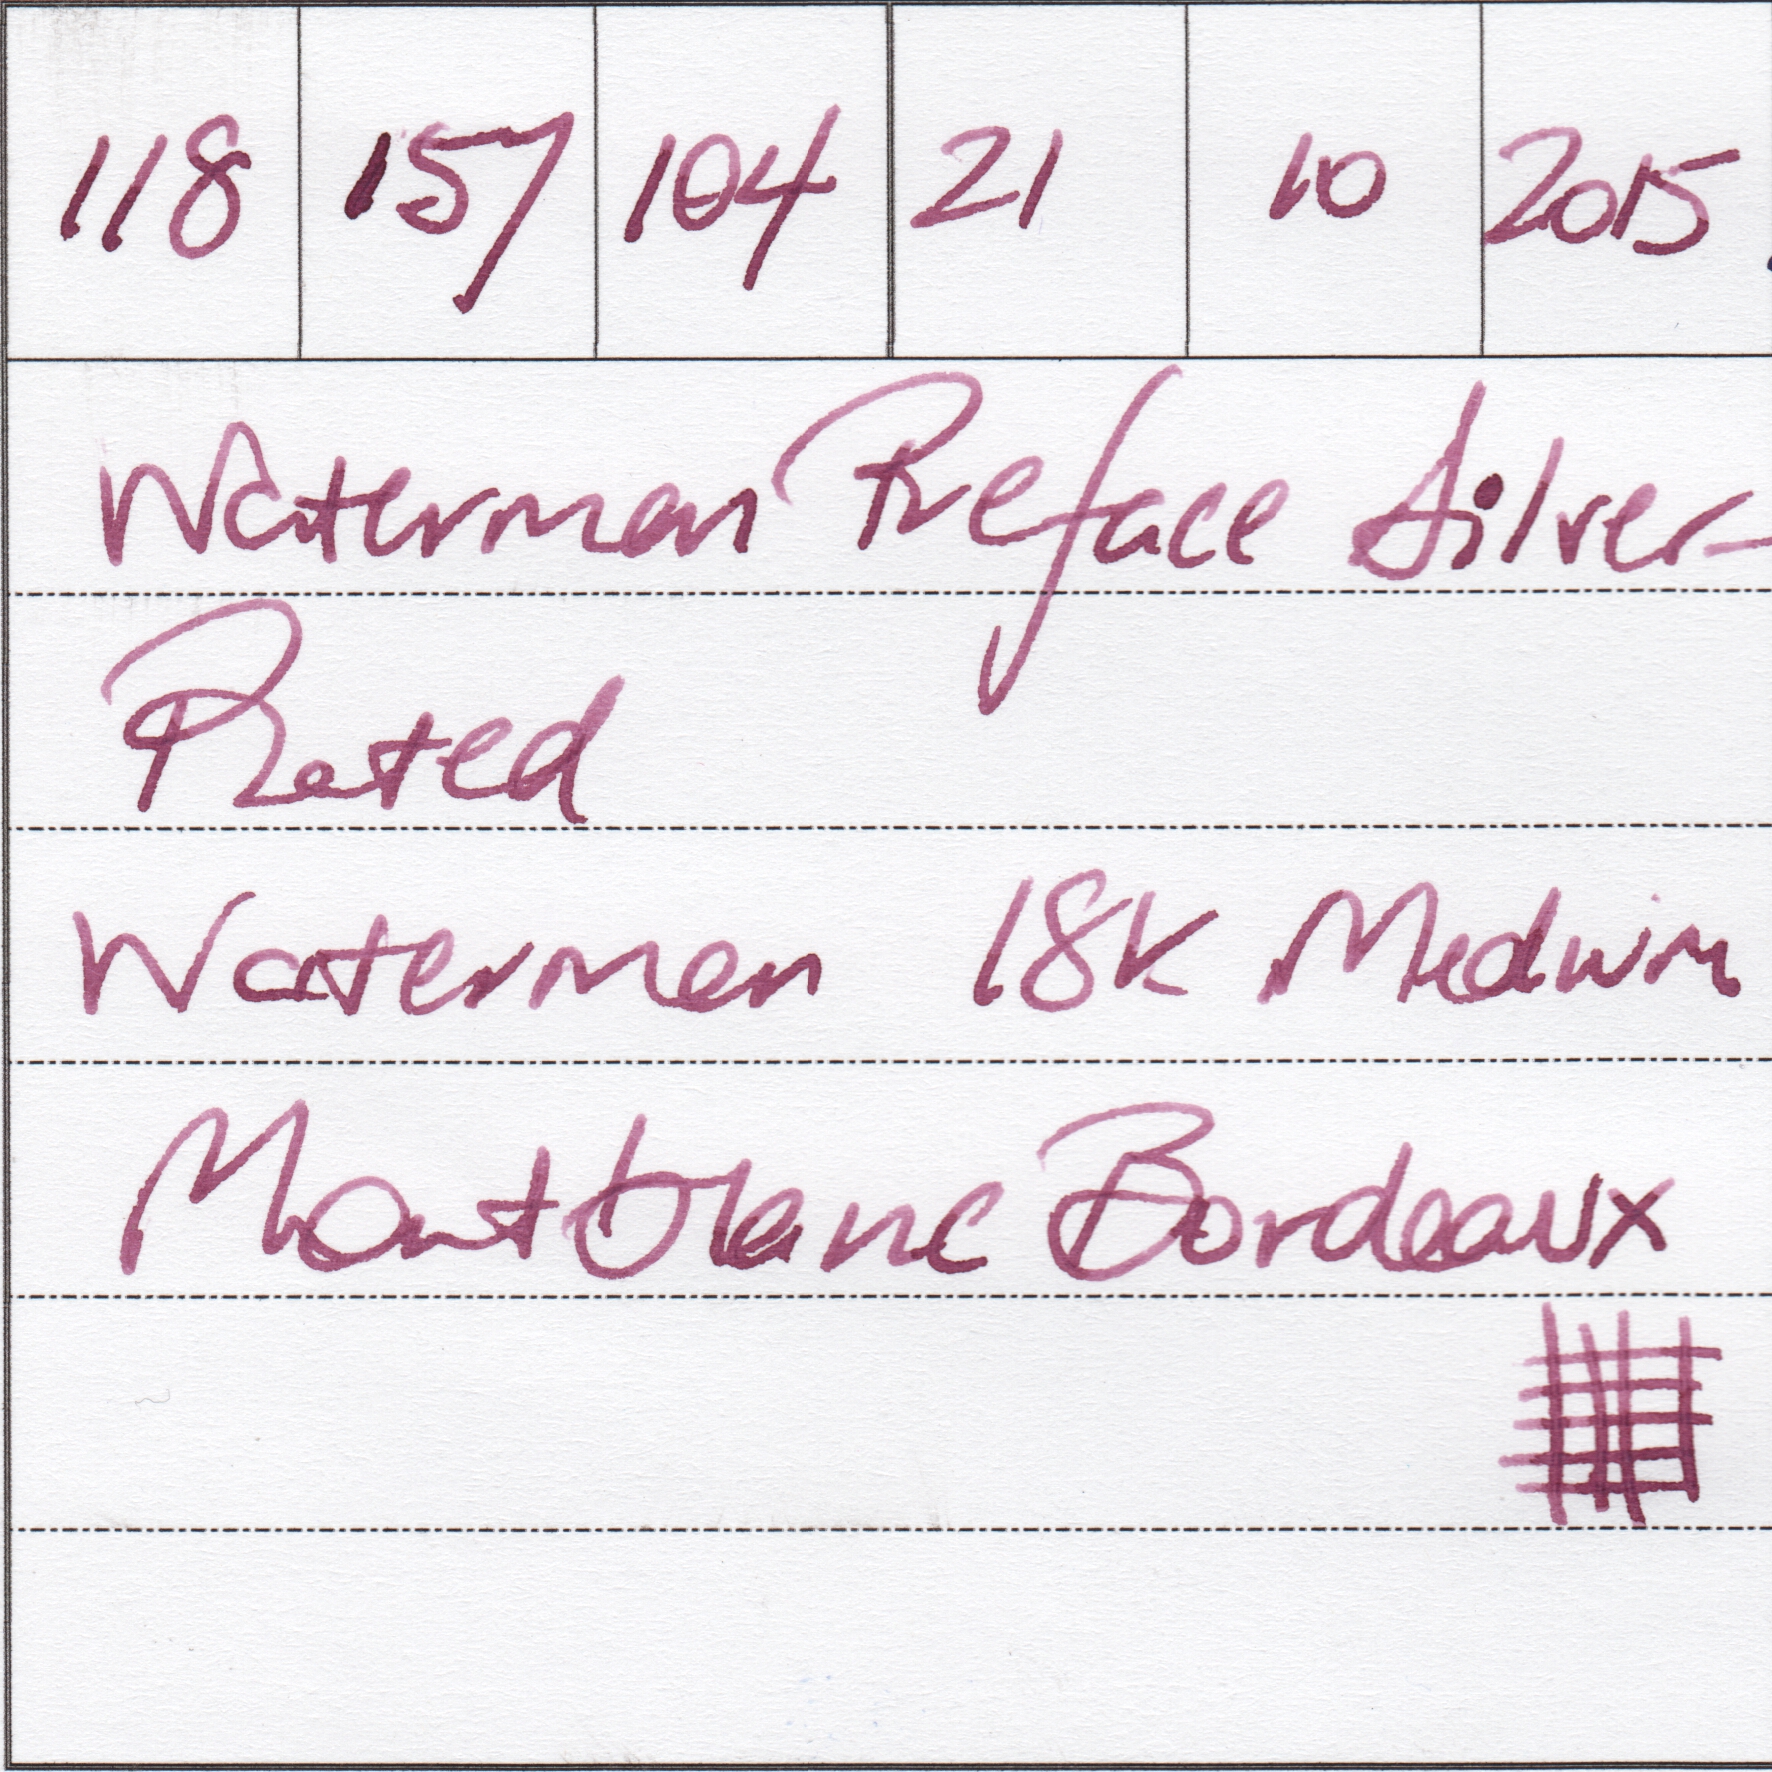 118 157 104 21 10 2015
Waterman Preface Silver-
Plated
Waterman 18K Medium
Montblanc Bordeaux